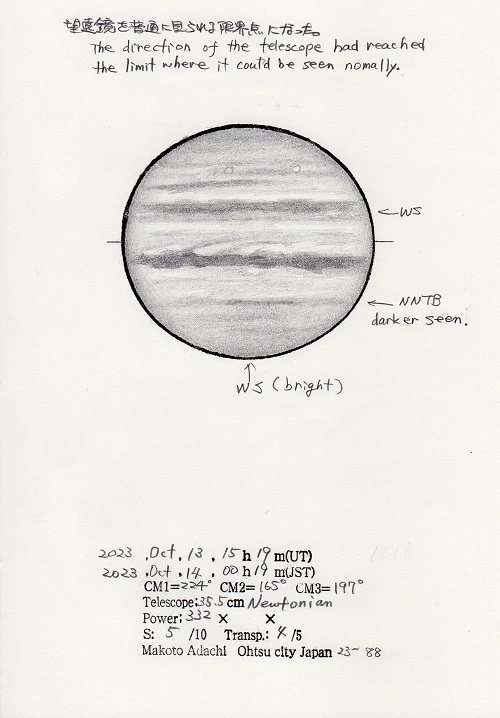 望遠鏡を普通に見られる限界点になった。
The direction of the telescope had reached
the limit where it could be seen nomally.
WS
NNTB
darker seen.
WS (bright)
2023 . Oct . 13 . 15 h 19 m(UT)
2023 . Oct . 14 . 00 h 19 m(JST)
CM1=224° CM2=165° CM3=197°
Telescope:35.5cm Newtonian
Power: 332 × ×
S: 5 /10 Transp.: 4 /5
Makoto Adachi Ohtsu city Japan 23-88